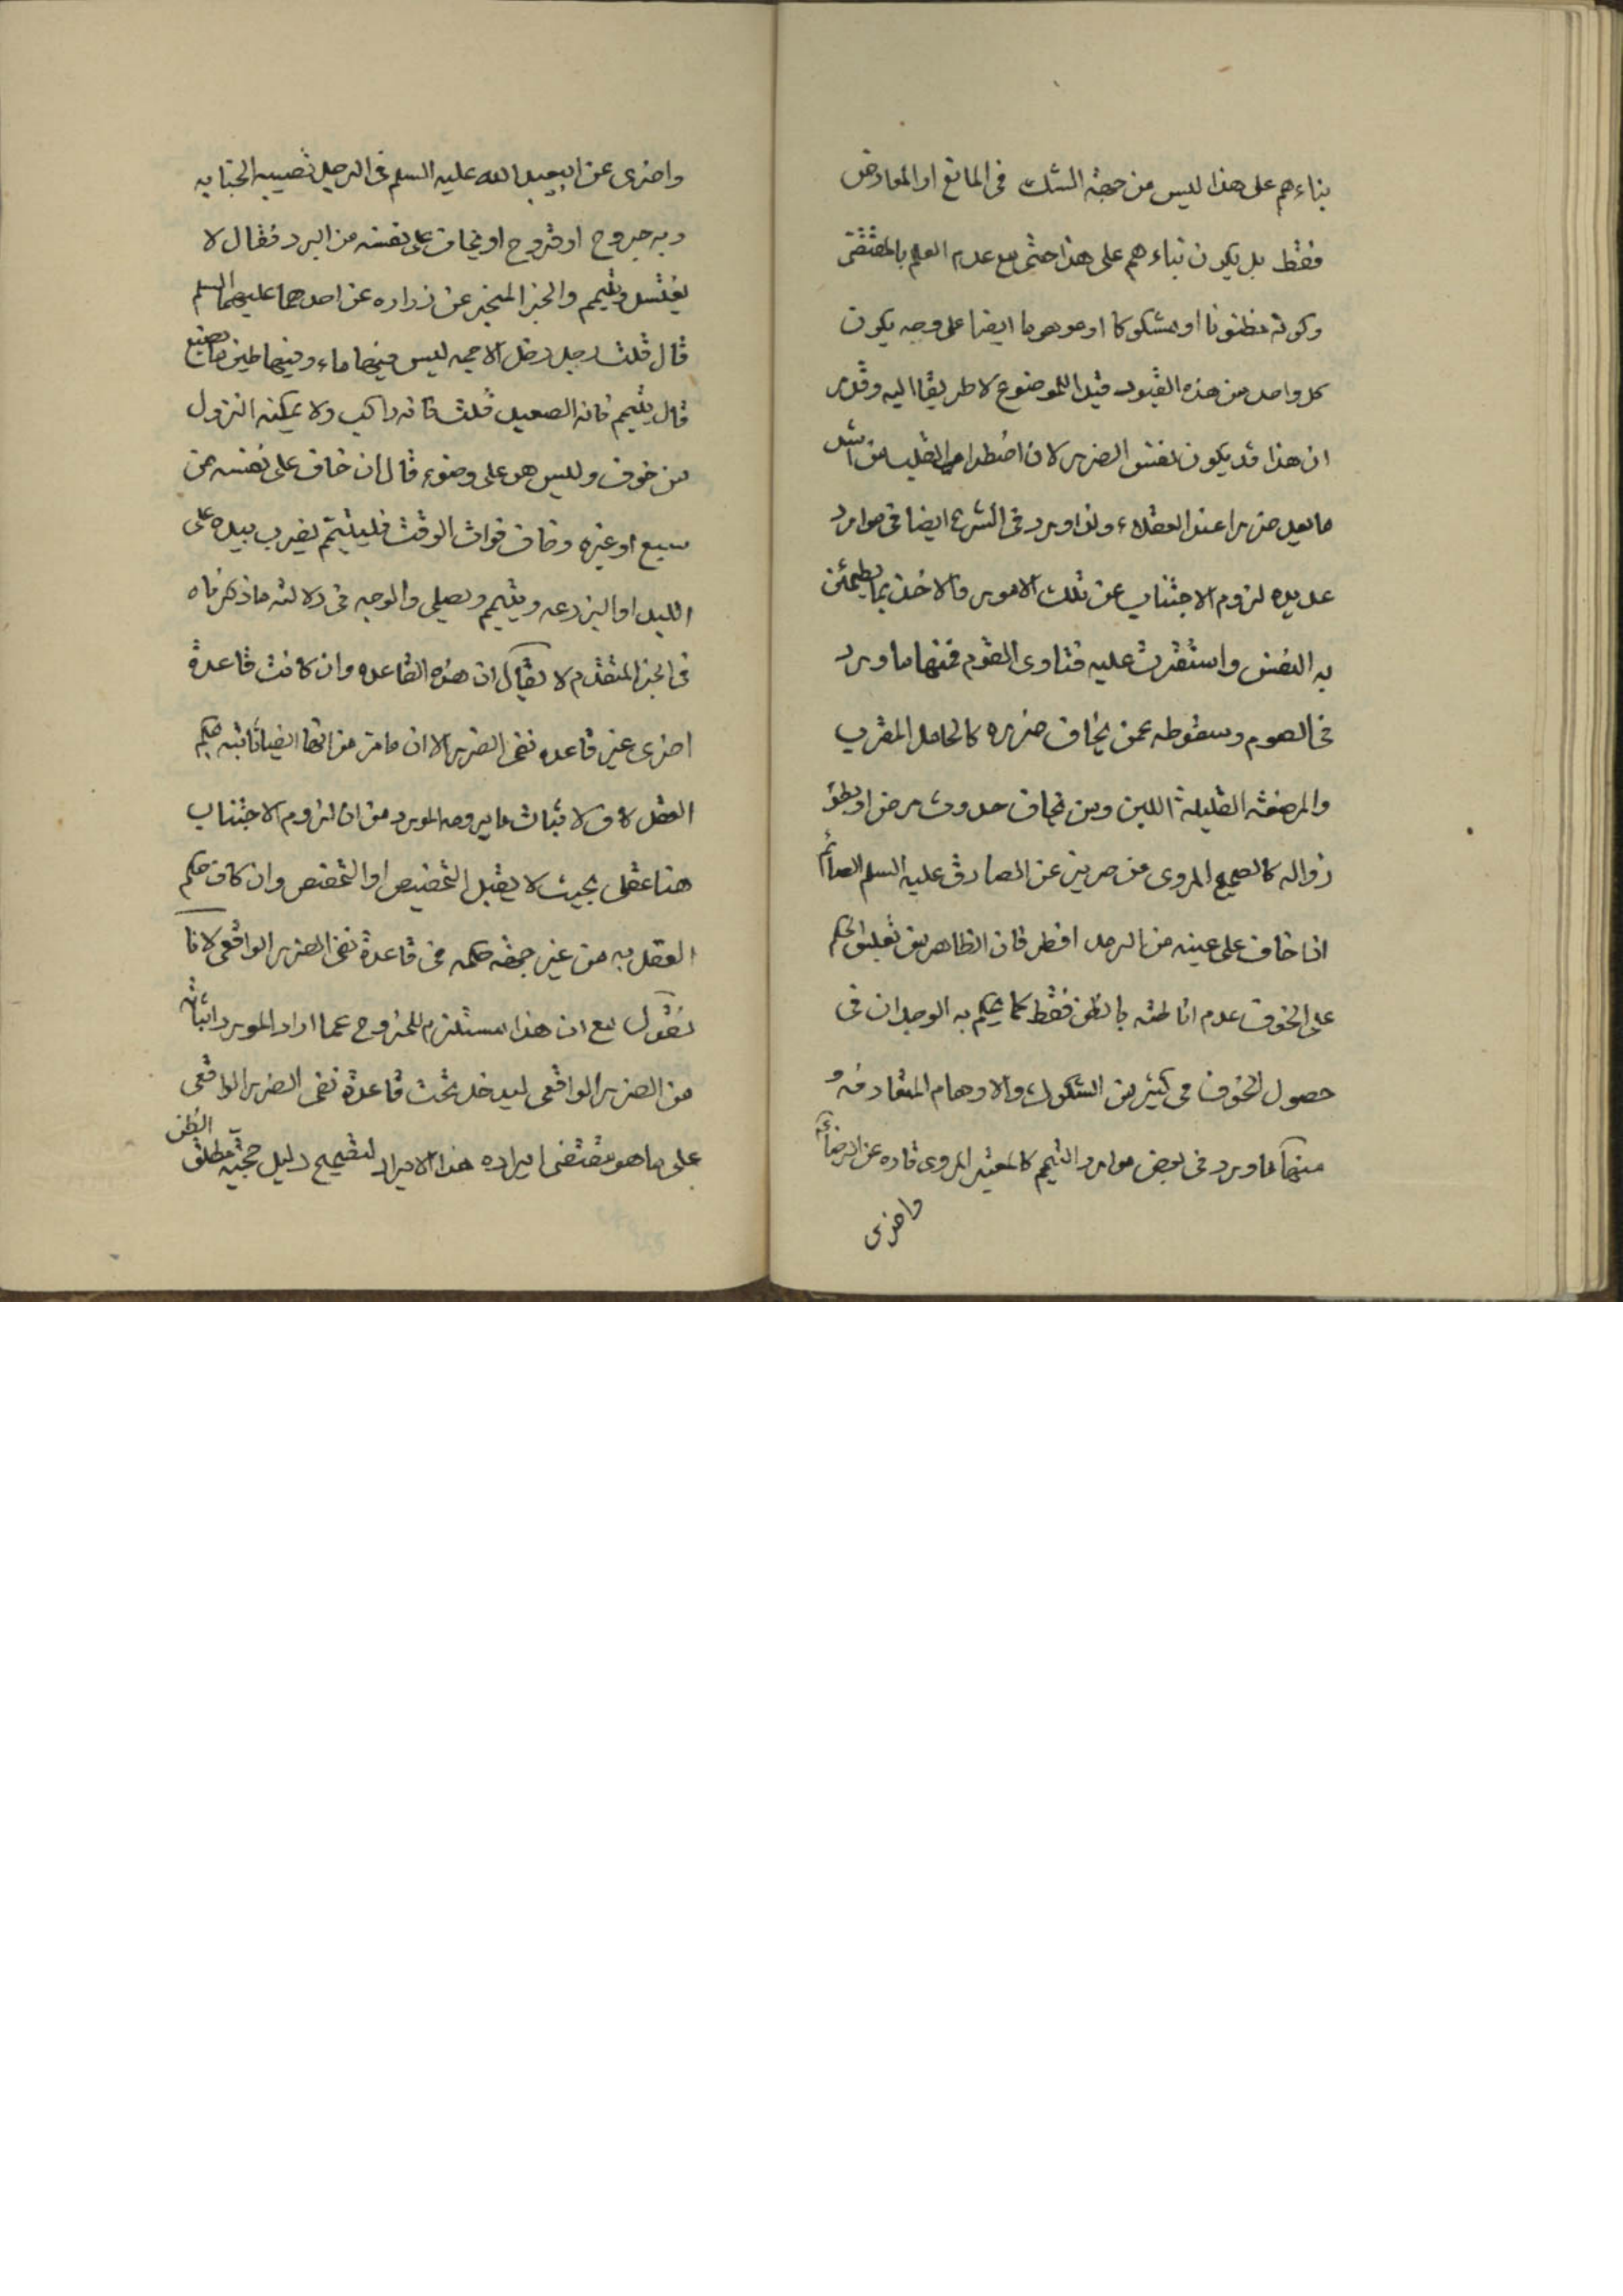 بناءهم على هذا ليس من جهة الشك فى المانع او المعارض
فقط بل يكون بناءهم على هذا حتى مع عدم العلم بالمقتضى
وكونه مظنونا او مشكوكا او موهوما ايضا على وجه يكون
كل واحد من هذه القيود قيدا للموضوع لا طريقا اليه وقدمر
ان هذا قد يكون نفس الضرر لان اضطراب القلب من اشد
ما يعد ضررا عند العقلاء ولذا ورد فى الشرع ايضا فى موارد
عديده لزوم الاجتناب عن تلك الامور والاخذ بما يطمئن
به النفس واستقرت عليه فتاوى القوم فمنها ما ورد
فى الصوم وسقوطه عمن يخاف ضرره كالحامل المقرب
والمرضعة القليلة اللبن ومن يخاف حدوث مرض او بطؤ
زواله كالصحيح المروى عن حريز عن الصادق عليه السلم الصائم
اذا خاف على عينه من الرمد افطر فان الظاهر من تعليق الحكم
على الخوف عدم اناطته بالظن فقط كما يحكم به الوجدان فى
حصول الخوف فى كثير من الشكوك والاوهام المتعارفه و
منها ما ورد فى بعض موارد التيمم كالمعتبر المروى تارة عن الرضا ع
واخرى
واخرى عن ابيعبد الله عليه السلم فى الرجل تصيبه الجنابه
وبه جروح او قروح او يخاف على نفسه من البرد فقال لا
يغتسل ويتيمم والخبر المنجبر عن زراره عن احدهما عليهما السلم
قال قلت رجل دخل الاجمه ليس فيها ماء وفيها طين ما يصنع
قال يتيمم فانه الصعيد قلت فانه راكب ولا يمكنه النزول
من خوف وليس هو على وضوء قال ان خاف على نفسه من
سبع او غيره وخاف فوات الوقت فليتيمم يضرب بيده على
اللبد او البرذعه ويتيمم ويصلى والوجه فى دلالته ما ذكرناه
فى الخبر المتقدم لا يقال ان هذه القاعده وان كانت قاعدة
اخرى غير قاعده نفى الضرر الا ان ما مر من انها ايضا ثابته بحكم
العقل كاف لاثبات ما يرومه المورد من ان لزوم الاجتناب
هنا عقلى بحيث لا يقبل التخصيص او التخصص وان كان حكم
العقل به من غير جهة حكمه فى قاعدة نفى الضرر الواقعى لانا
نقول مع ان هذا مستلزم للخروج عما اراد المورد اثباته
من الضرر الواقعى ليدخل تحت قاعدة نفى الضرر الواقعى
على ما هو مقتضى ايراده هذا الايراد لتصحيح دليل حجية مطلق الظن